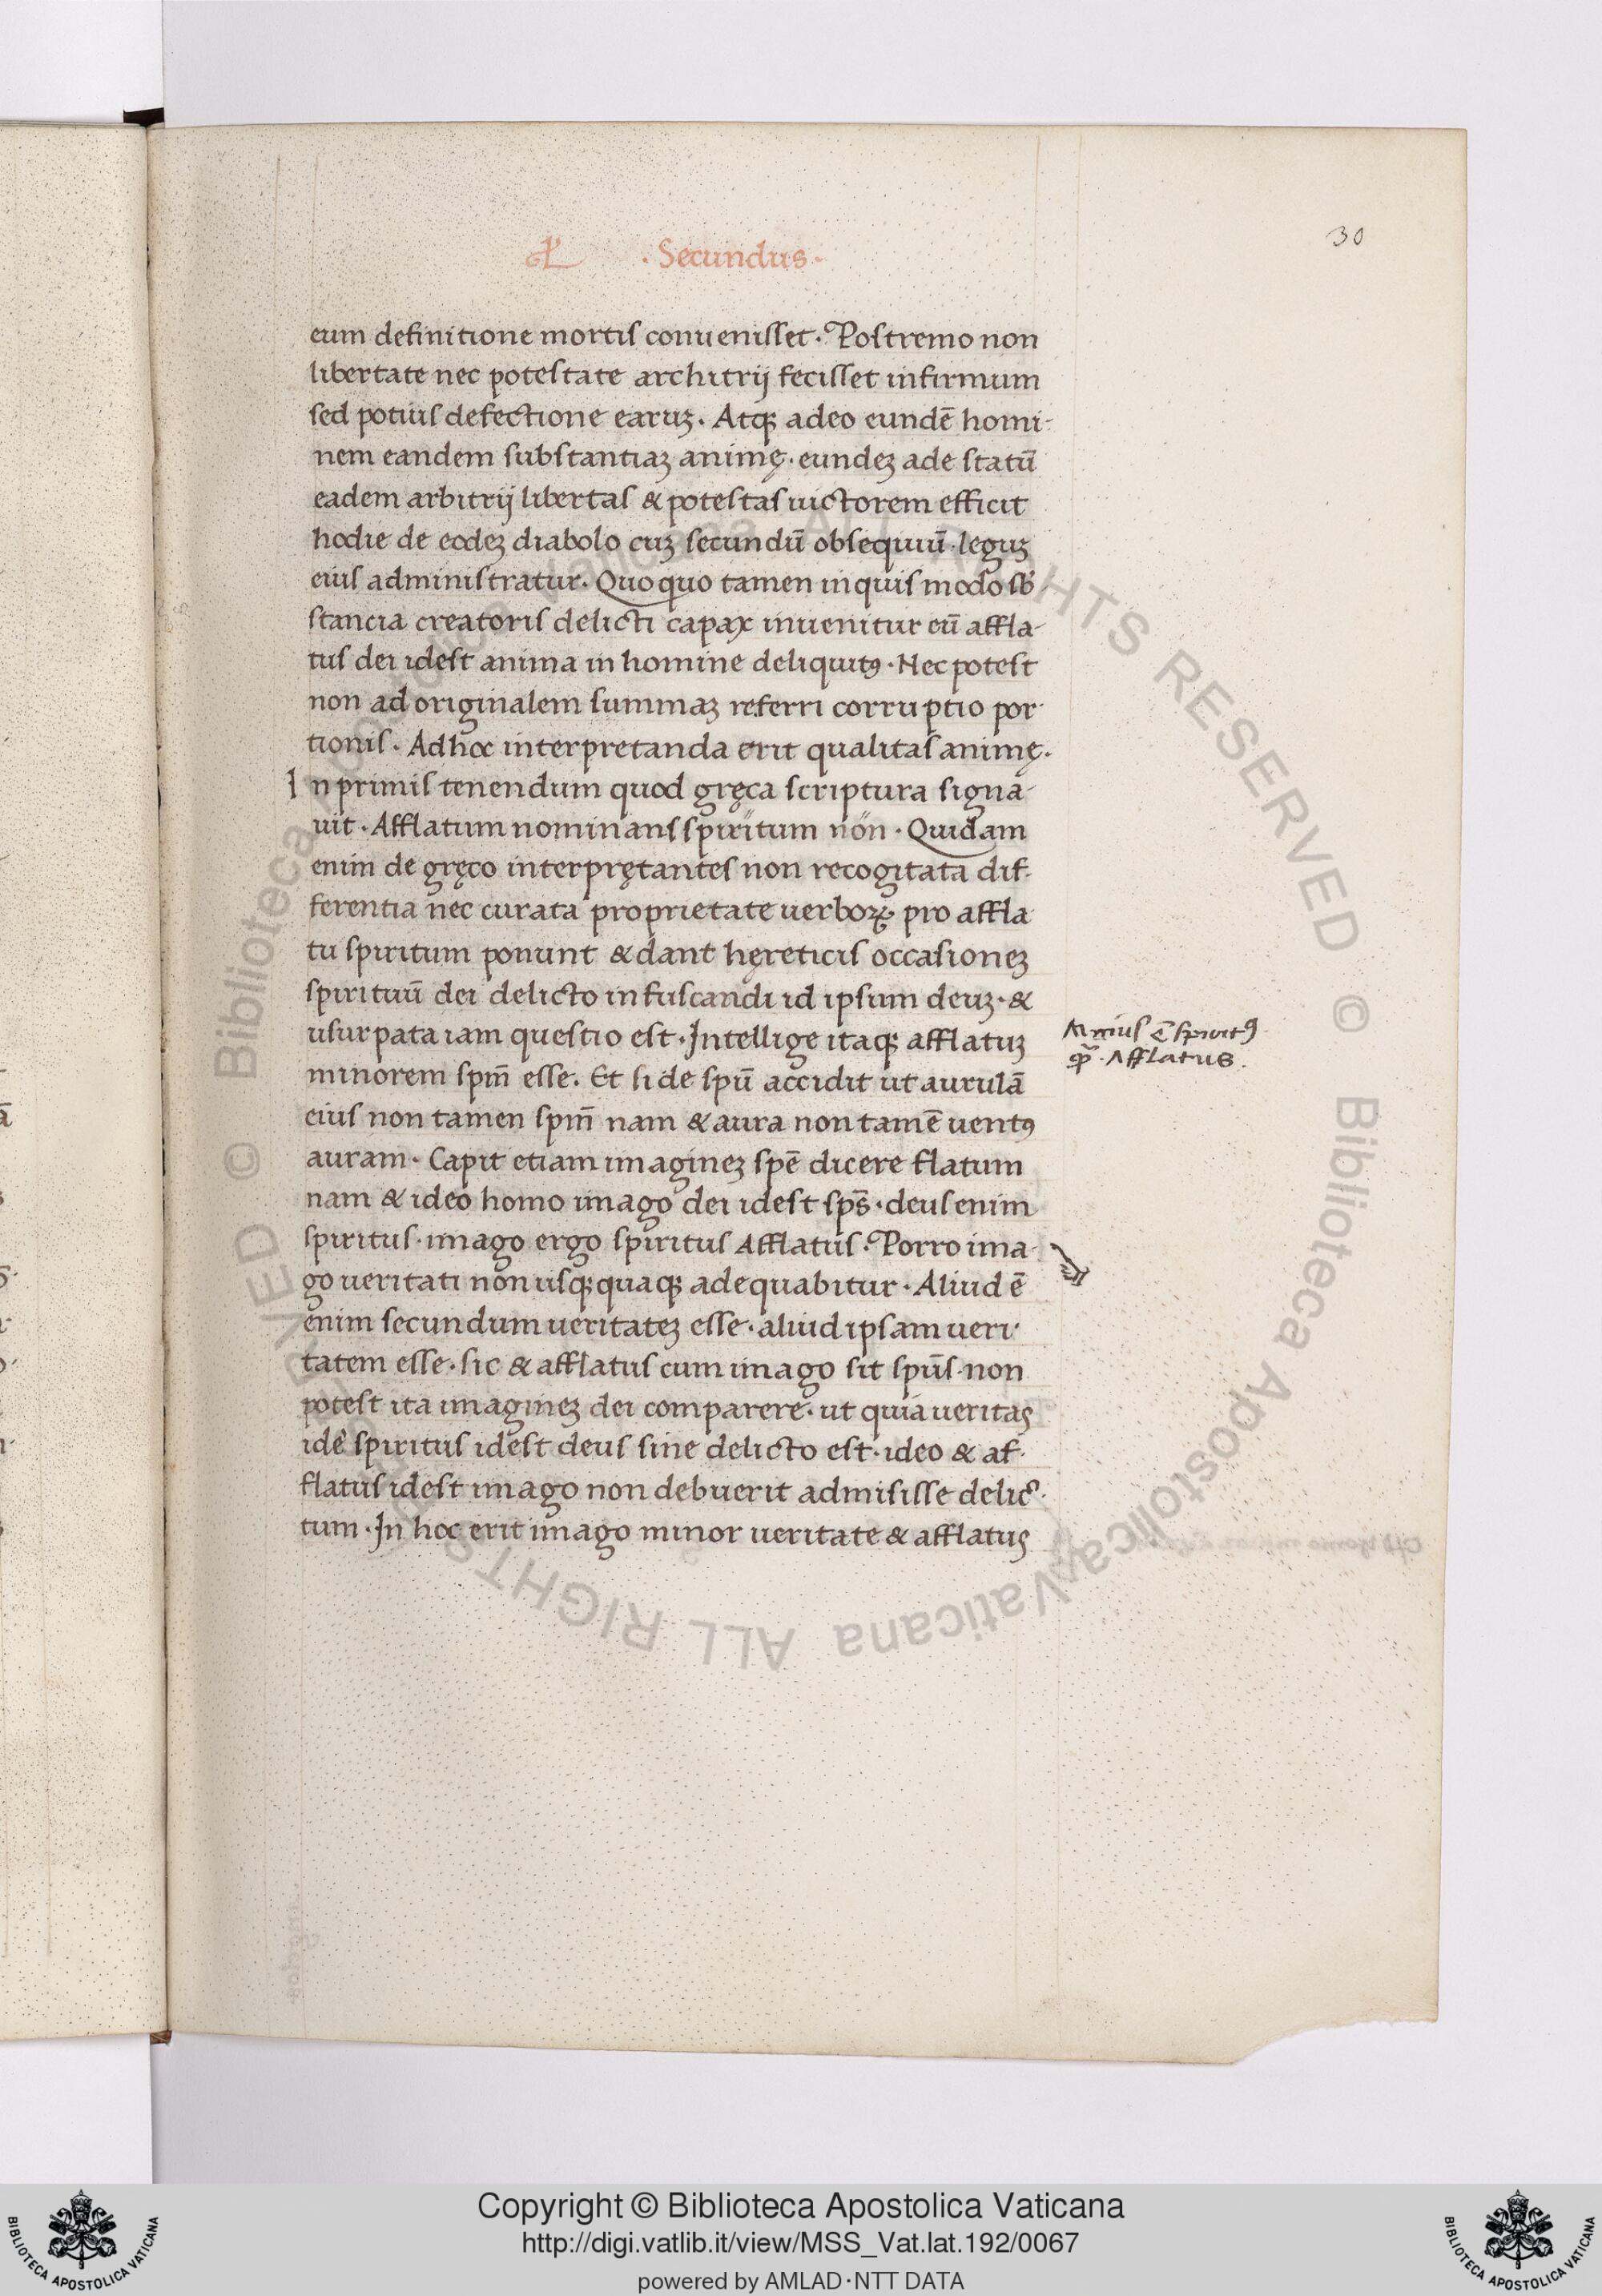 30
L · Secundus ·
eum definitione mortis conuenisset · Postremo non
libertate nec potestate architrij fecisset infirmum
sed potius defectione earuȝ · Atqꝫ adeo eundē homi-
nem eandem substantiaȝ animę · eundeȝ ade statū
eadem arbitrij libertas & potestas uictorem efficit
hodie de eodeȝ diabolo cuȝ secundū obsequiū · leguȝ
eius administratur. Quo quo tamen inquis modo sb̄
stancia creatoris delicti capax inuenitur cū affla-
tus dei idest anima in homine deliquitꝰ · Nec potest
non ad originalem summaȝ referri corruptio por-
tionis · Ad hoc interpretanda erit qualitas animę ·
In primis tenendum quod gręca scriptura signa-
uit · Afflatum nominans spiritum non · Quidam
enim de gręco interprętantes non recogitata dif-
ferentia nec curata proprietate uerboꝝ pro affla
tu spiritum ponunt & dant hęreticis occasioneȝ
spirituū dei delicto infuscandi id ipsum deuȝ · &
usurpata iam questio est · Intellige itaqꝫ afflatuȝ
minorem spm̄ esse. Et si de spū accidit ut aurulā
eius non tamen spm̄ nam & aura non tamē uentꝰ
auram · Capit etiam imagineȝ spē dicere flatum
nam & ideo homo imago dei idest sps̄ · deus enim
spiritus · imago ergo spiritus Afflatus · Porro ima-
go ueritati non usqꝫquaqꝫ adequabitur · Aliud ē
enim secundum ueritateȝ esse · aliud ipsam ueri-
tatem esse · sic & afflatus cum imago sit spūs · non
potest ita imagineȝ dei comparere · ut quia ueritas
idē spiritus idest deus sine delicto est · ideo & af-
flatus idest imago non debuerit admisisse delic ·
tum · In hoc erit imago minor ueritate & afflatus
ē spiritꝰ
Afflatus.
© Biblioteca Apostolica Vaticana ALL RIGHTS RESERVED © Biblioteca Apostolica Vaticana ALL RIGHTS RESERVED
Copyright © Biblioteca Apostolica Vaticana
http://digi.vatlib.it/view/MSS_Vat.lat.192/0067
powered by AMLAD·NTT DATA
BIBLIOTECA APOSTOLICA VATICANA
BIBLIOTECA APOSTOLICA VATICANA